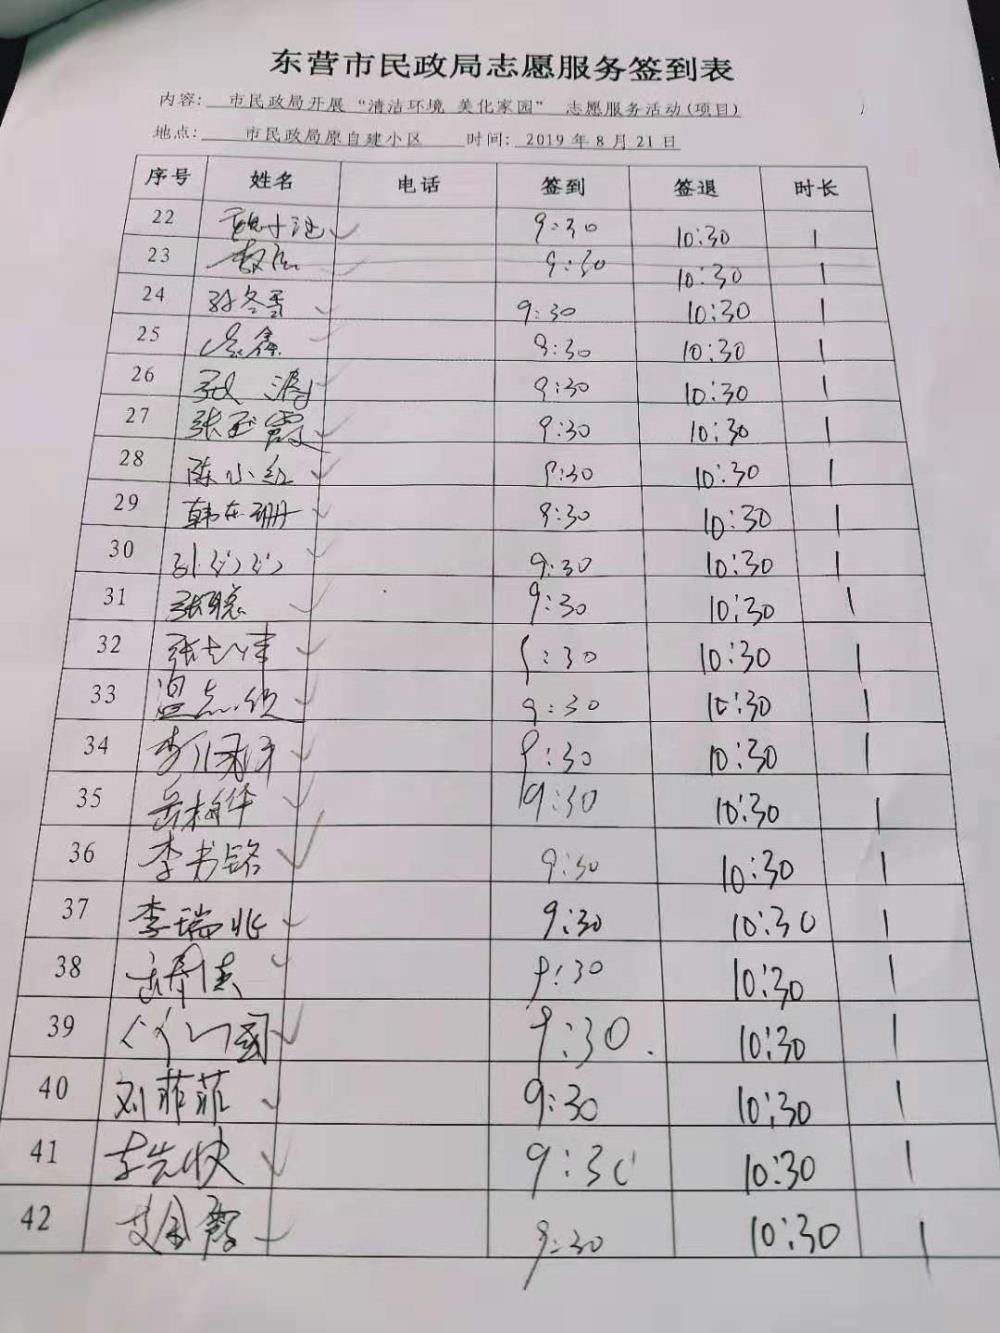 东营市民政局志愿服务签到表
内容: 市民政局开展“清洁环境 美化家园” 志愿服务活动(项目)
地点: 市民政局原自建小区 时间: 2019年8月21日
序号 姓名 电话 签到 签退 时长
22 9:30 10:30 1
23 9:30 10:30 1
24 孙冬雪 9:30 10:30 1
25 9:30 10:30 1
26 张涛 9:30 10:30 1
27 张玉霞 9:30 10:30 1
28 陈小红 9:30 10:30 1
29 韩在珊 9:30 10:30 1
30 9:30 10:30 1
31 张聪 9:30 10:30 1
32 9:30 10:30 1
33 温志欣 9:30 10:30 1
34 9:30 10:30 1
35 岳梅华 9:30 10:30 1
36 李书铭 9:30 10:30 1
37 李瑞兆 9:30 10:30 1
38 9:30 10:30 1
39 9:30. 10:30 1
40 刘菲菲 9:30 10:30 1
41 9:30 10:30 1
42 9:30 10:30 1